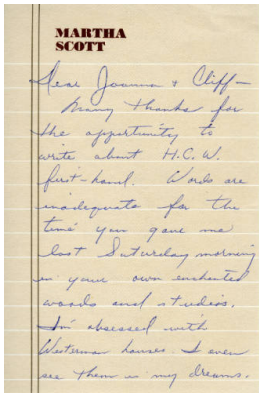 MARTHA
SCOTT
Dear Joanna & Cliff–
Many thanks for
the opportunity to
write about H.C.W.
first-hand. Words are
inadequate for the
time you gave me
last Saturday morning
in your own enchanted
woods and studios.
I'm obsessed with
Westerman houses. I even
see them in my dreams.